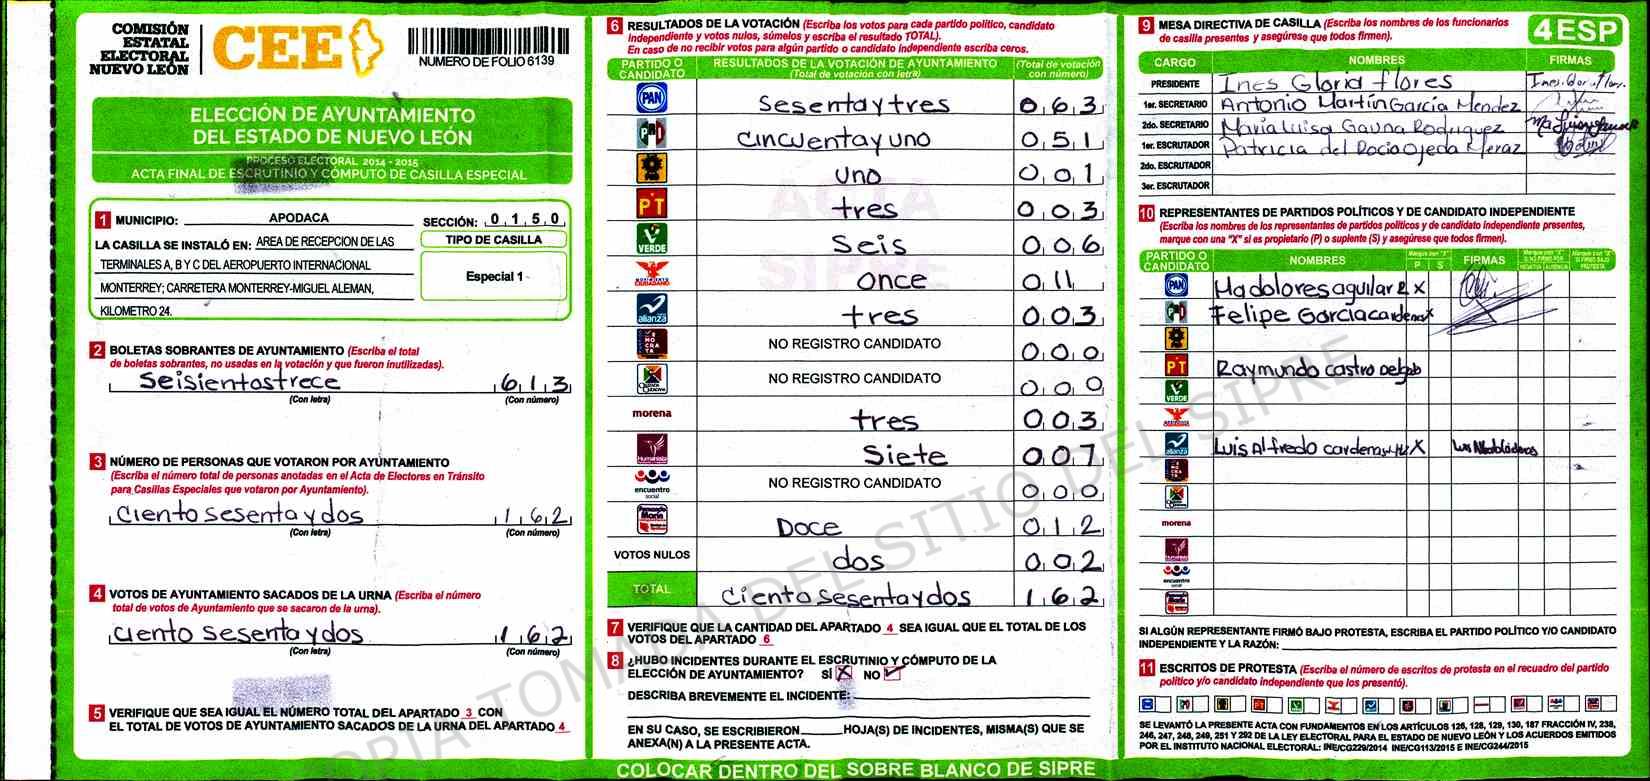 COMISIÓN
ESTATAL
ELECTORAL
NUEVO LEÓN
CEE
NUMERO DE FOLIO 6139
ELECCIÓN DE AYUNTAMIENTO
DEL ESTADO DE NUEVO LEÓN
PROCESO ELECTORAL 2014 - 2015
ACTA FINAL DE ESCRUTINIO Y CÓMPUTO DE CASILLA ESPECIAL
1 MUNICIPIO: APODACA SECCIÓN: 0 1 5 0
LA CASILLA SE INSTALÓ EN: AREA DE RECEPCION DE LAS
TERMINALES A, B Y C DEL AEROPUERTO INTERNACIONAL
MONTERREY; CARRETERA MONTERREY-MIGUEL ALEMAN,
KILOMETRO 24.
TIPO DE CASILLA
Especial 1
2 BOLETAS SOBRANTES DE AYUNTAMIENTO (Escriba el total
de boletas sobrantes, no usadas en la votación y que fueron inutilizadas).
Seisientostrece 6 1 3
(Con letra) (Con número)
3 NÚMERO DE PERSONAS QUE VOTARON POR AYUNTAMIENTO
(Escriba el número total de personas anotadas en el Acta de Electores en Tránsito
para Casillas Especiales que votaron por Ayuntamiento).
Ciento sesenta y dos 1 6 2
(Con letra) (Con número)
4 VOTOS DE AYUNTAMIENTO SACADOS DE LA URNA (Escriba el número
total de votos de Ayuntamiento que se sacaron de la urna).
Ciento Sesenta y dos 1 6 2
(Con letra) (Con número)
5 VERIFIQUE QUE SEA IGUAL EL NÚMERO TOTAL DEL APARTADO 3 CON
EL TOTAL DE VOTOS DE AYUNTAMIENTO SACADOS DE LA URNA DEL APARTADO 4
6 RESULTADOS DE LA VOTACIÓN (Escriba los votos para cada partido político, candidato
independiente y votos nulos, súmelos y escriba el resultado TOTAL).
En caso de no recibir votos para algún partido o candidato independiente escriba ceros.
PARTIDO O
CANDIDATO
RESULTADOS DE LA VOTACIÓN DE AYUNTAMIENTO
(Total de votación con letra)
(Total de votación
con número)
PAN Sesenta y tres 0 6 3
PRI Cincuenta y uno 0 5 1
PRD uno 0 0 1
PT tres 0 0 3
VERDE Seis 0 0 6
MOVIMIENTO CIUDADANO Once 0 1 1
alianza tres 0 0 3
NO REGISTRO CANDIDATO 0 0 0
NO REGISTRO CANDIDATO 0 0 0
morena tres 0 0 3
Humanista Siete 0 0 7
encuentro social NO REGISTRO CANDIDATO 0 0 0
Doce 0 1 2
VOTOS NULOS dos 0 0 2
TOTAL Ciento Sesenta y dos 1 6 2
ACTA
SIPRE
7 VERIFIQUE QUE LA CANTIDAD DEL APARTADO 4 SEA IGUAL QUE EL TOTAL DE LOS
VOTOS DEL APARTADO 6
8 ¿HUBO INCIDENTES DURANTE EL ESCRUTINIO Y CÓMPUTO DE LA
ELECCIÓN DE AYUNTAMIENTO? SÍ X NO ✓
DESCRIBA BREVEMENTE EL INCIDENTE:
EN SU CASO, SE ESCRIBIERON HOJA(S) DE INCIDENTES, MISMA(S) QUE SE
ANEXA(N) A LA PRESENTE ACTA.
COLOCAR DENTRO DEL SOBRE BLANCO DE SIPRE
9 MESA DIRECTIVA DE CASILLA (Escriba los nombres de los funcionarios
de casilla presentes y asegúrese que todos firmen).
4 ESP
CARGO NOMBRES FIRMAS
PRESIDENTE Ines Gloria flores
1er. SECRETARIO Antonio Martín García Mendez
2do. SECRETARIO María Luisa Gauna Rodriguez
1er. ESCRUTADOR Patricia del Rocio Ojeda Meraz
2do. ESCRUTADOR
3er. ESCRUTADOR
10 REPRESENTANTES DE PARTIDOS POLÍTICOS Y DE CANDIDATO INDEPENDIENTE
(Escriba los nombres de los representantes de partidos políticos y de candidato independiente presentes,
marque con una "X" si es propietario (P) o suplente (S) y asegúrese que todos firmen).
PARTIDO O
CANDIDATO
NOMBRES P S FIRMAS
PAN Ma dolores aguilar R X
PRI Felipe Garcia cardenas X
PRD
PT Raymundo castro Delgado
VERDE
alianza Luis Alfredo cardenas X
morena
encuentro social
SI ALGÚN REPRESENTANTE FIRMÓ BAJO PROTESTA, ESCRIBA EL PARTIDO POLÍTICO Y/O CANDIDATO
INDEPENDIENTE Y LA RAZÓN:
11 ESCRITOS DE PROTESTA (Escriba el número de escritos de protesta en el recuadro del partido
político y/o candidato independiente que los presentó).
SE LEVANTÓ LA PRESENTE ACTA CON FUNDAMENTOS EN LOS ARTÍCULOS 126, 128, 129, 130, 187 FRACCIÓN IV, 238,
246, 247, 248, 249, 251 Y 292 DE LA LEY ELECTORAL PARA EL ESTADO DE NUEVO LEÓN Y LOS ACUERDOS EMITIDOS
POR EL INSTITUTO NACIONAL ELECTORAL: INE/CG229/2014 INE/CG113/2015 E INE/CG244/2015
COPIA TOMADA DEL SITIO DEL SIPRE